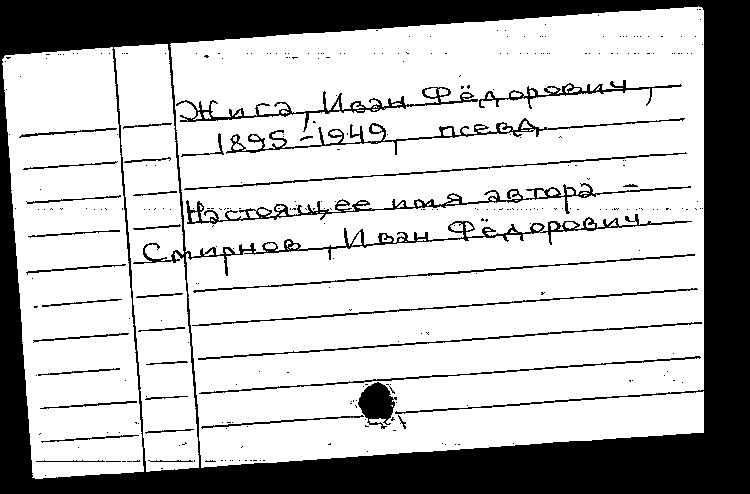 Жига, Иван Фёдорович,
1895-1949, псевд.
Настоящее имя автора -
Смирнов, Иван Фёдорович.